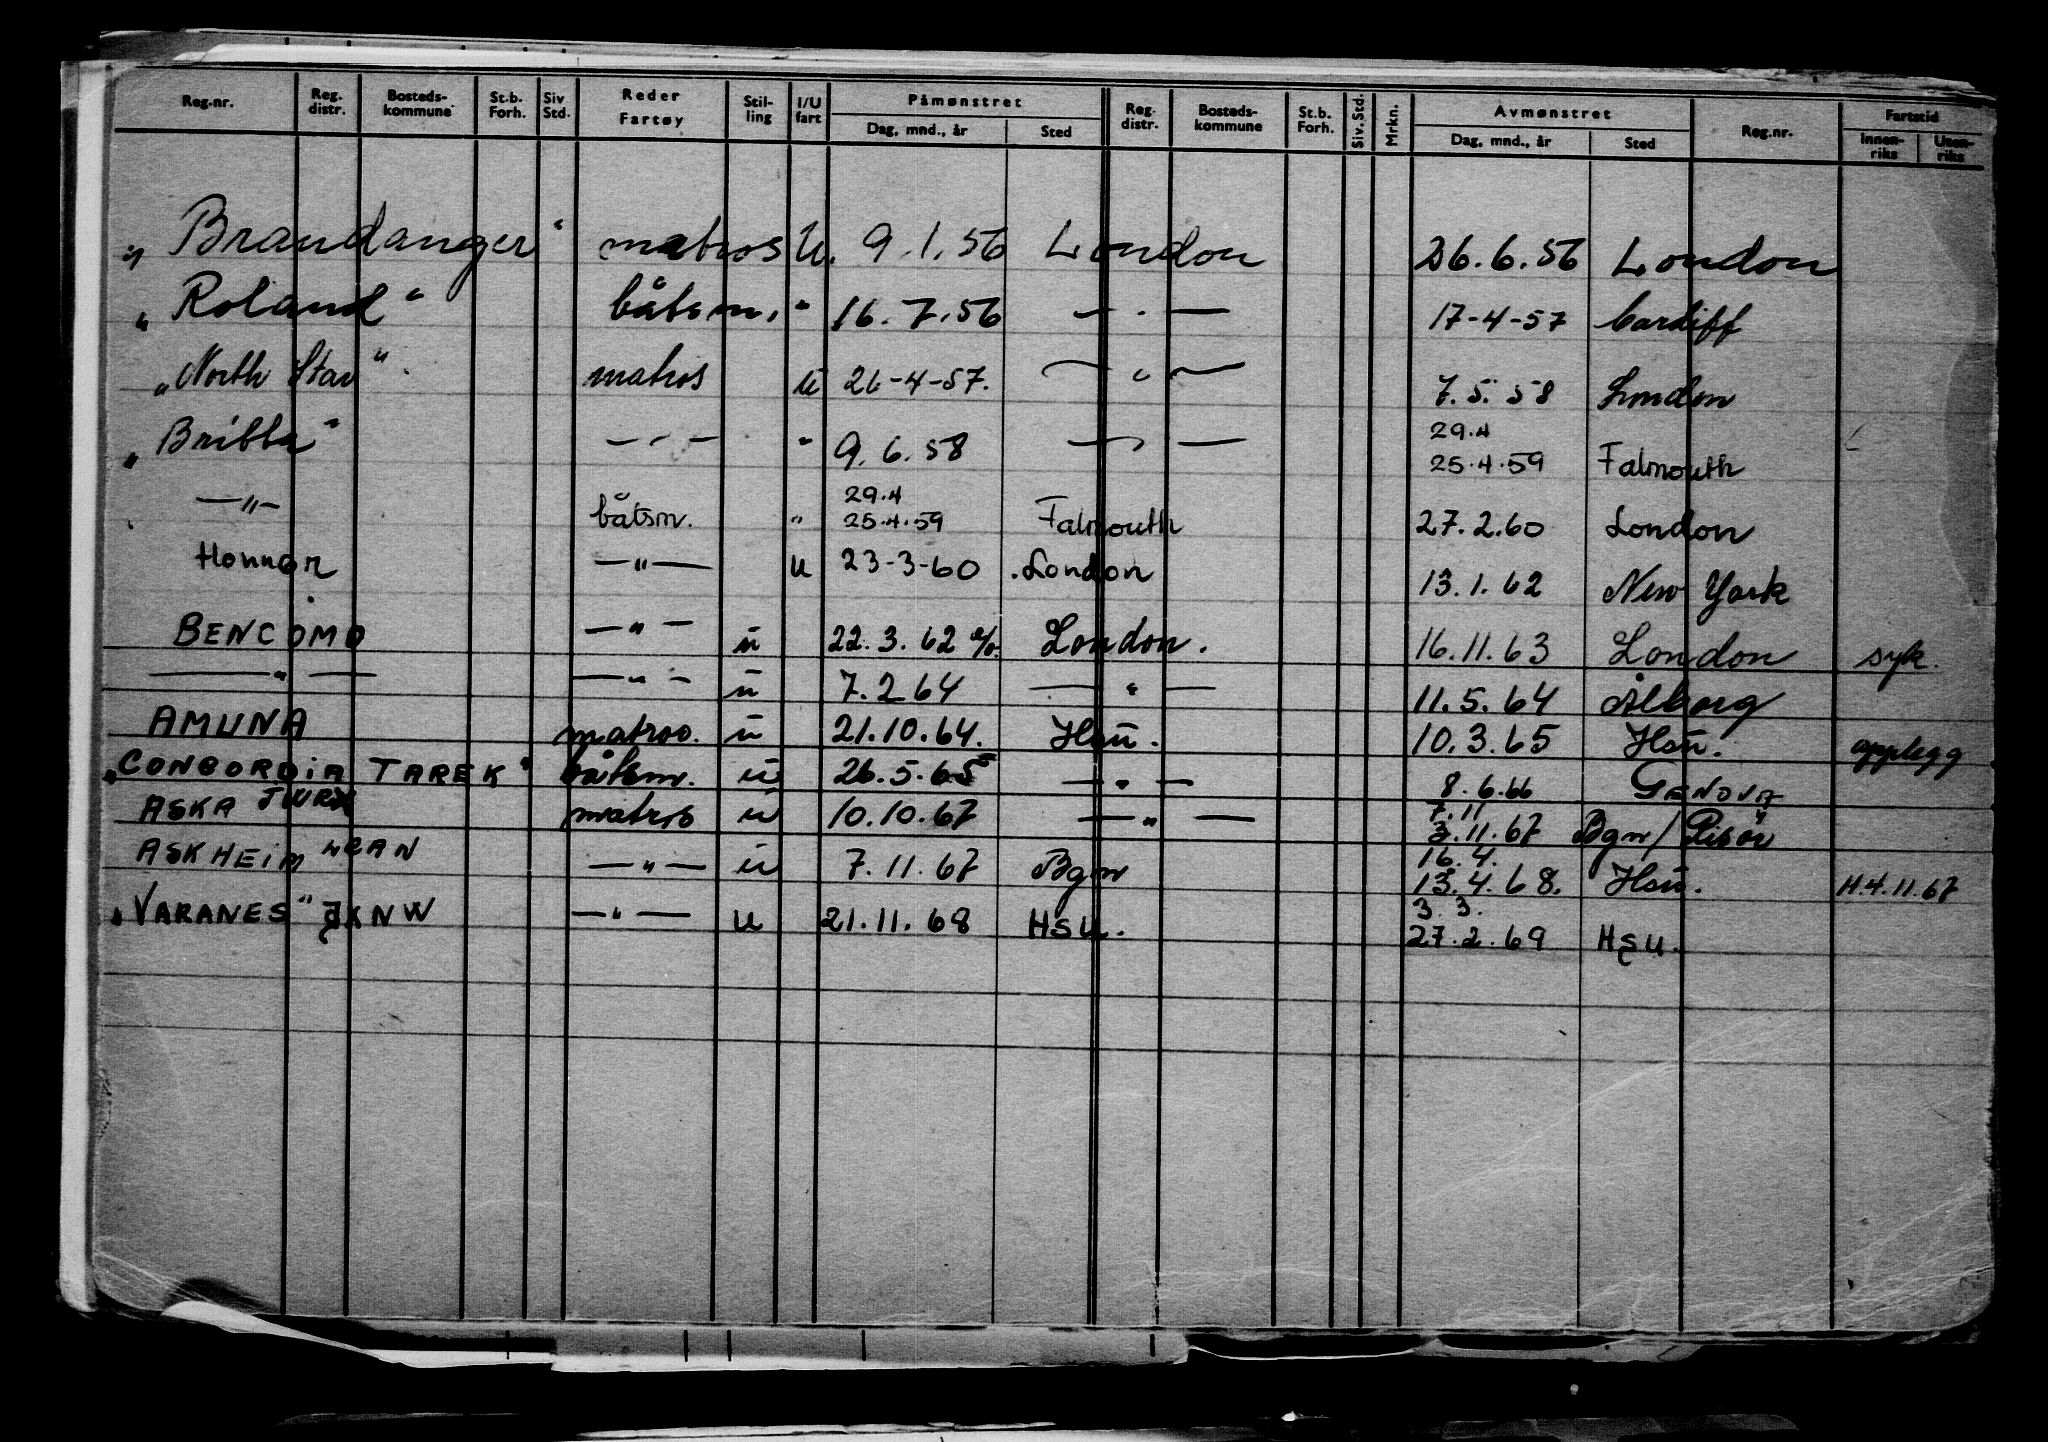 Reg.-nr. Reg. distr. Bosteds-kommune St.b. Forh. Siv Std. Reder Fartøy Stil-ling I/U fart Påmønstret Dag, mnd., år Sted Reg. distr. Bosteds-kommune St.b. Forh. Siv. Std. Mrkn. Avmønstret Dag, mnd., år Sted Reg.nr. Fartstid Innen-riks Uten-riks
"Brandanger" matros U. 9.1.56 London 26.6.56 London
"Roland" båtsm. " 16.7.56 — " — 17-4-57 Cardiff
"North Star" matros U 26-4-57. — " — 7.5.58 London
"Bribba" — " — " 9.6.58 — " — 29.4 25.4.59 Falmouth
— " — båtsm. " 29.4 25.4.59 Falmouth 27.2.60 London
Honnør — " — U 23-3-60 London 13.1.62 New York
BENCOMO — " — u 22.3.62 London. 16.11.63 London syk.
— " — — " — u 7.2.64 — " — 11.5.64 Ålborg
AMUNA matros. u 21.10.64. Hsu. 10.3.65 Hsu. opplegg
"CONCORDIA TAREK" båtsm. u 26.5.65 — " — 8.6.66 GENOVA
ASKA JWRX matros u 10.10.67 — " — 7.11 3.11.67 Bgn/Risör
ASKHEIM LCAN — " — u 7.11.67 Bgn 16.4. 13.4.68. Hsu. H.4.11.67
"VARANES" JXNW — " — u 21.11.68 HSU. 3.3. 27.2.69 HSU.